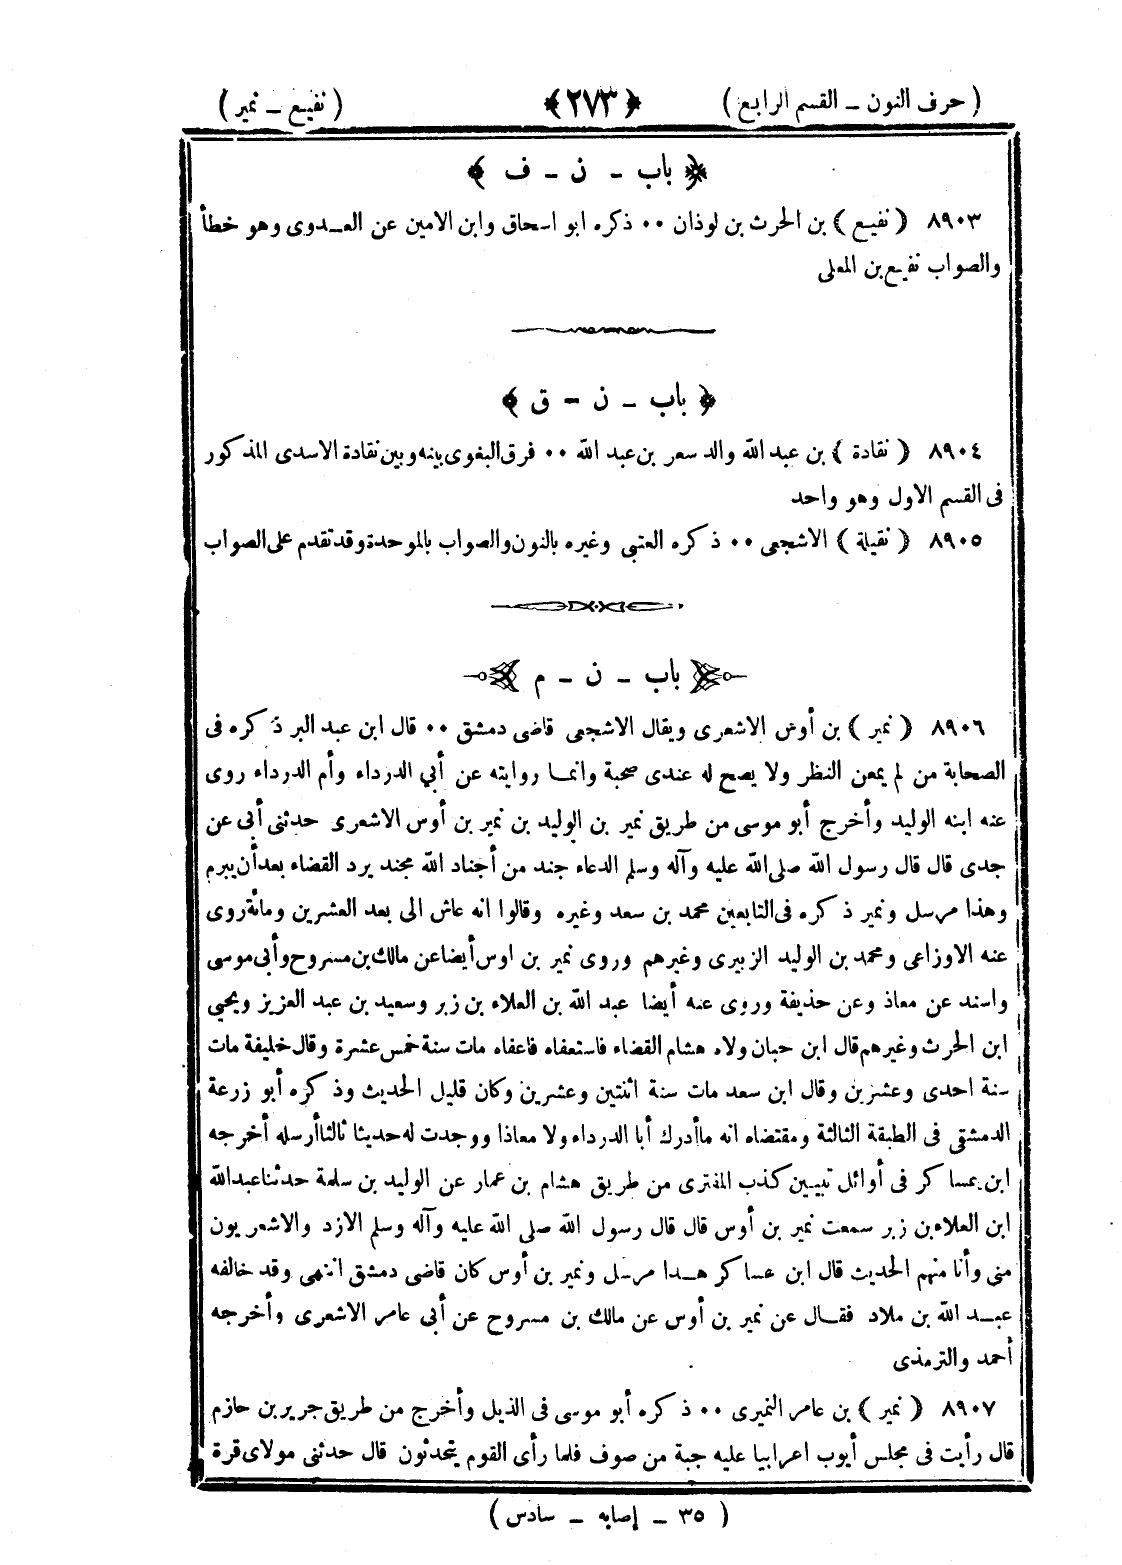 ( حرف النون - القسم الرابع ) ﴿ ٢٧٣ ﴾ ( نفيع - نمير )
﴿ باب - ن - ف ﴾
٨٩٠٣ ( نفيع ) بن الحرث بن لوذان ٠٠ ذكره ابو اسحاق وابن الامين عن العدوى وهو خطأ
والصواب نفيع بن المعلى
﴿ باب - ن - ق ﴾
٨٩٠٤ ( نقادة ) بن عبد الله والد سعر بن عبد الله ٠٠ فرق البغوى بينه وبين نقادة الاسدى المذكور
فى القسم الاول وهو واحد
٨٩٠٥ ( نقيلة ) الاشجعى ٠٠ ذكره العتبى وغيره بالنون والصواب بالموحدة وقد تقدم على الصواب
باب - ن - م
٨٩٠٦ ( نمير ) بن أوس الاشعرى ويقال الاشجعى قاضى دمشق ٠٠ قال ابن عبد البر ذكره فى
الصحابة من لم يمعن النظر ولا يصح له عندى صحبة وانما روايته عن أبي الدرداء وأم الدرداء روى
عنه ابنه الوليد وأخرج أبو موسى من طريق نمير بن الوليد بن نمير بن أوس الاشعرى حدثنى أبى عن
جدى قال قال رسول الله صلى الله عليه وآله وسلم الدعاء جند من أجناد الله مجند يرد القضاء بعد أن يبرم
وهذا مرسل ونمير ذكره فى التابعين محمد بن سعد وغيره وقالوا انه عاش الى بعد العشرين ومائة روى
عنه الاوزاعى ومحمد بن الوليد الزبيرى وغيرهم وروى نمير بن اوس أيضا عن مالك بن مسروح وأبى موسى
واسند عن معاذ وعن حذيفة وروى عنه أيضا عبد الله بن العلاء بن زبر وسعيد بن عبد العزيز ويحيى
ابن الحرث وغيرهم قال ابن حبان ولاه هشام القضاء فاستعفاه فاعفاه مات سنة خمس عشرة وقال خليفة مات
سنة احدى وعشرين وقال ابن سعد مات سنة اثنتين وعشرين وكان قليل الحديث وذكره أبو زرعة
الدمشقى فى الطبقة الثالثة ومقتضاه انه ماأدرك أبا الدرداء ولا معاذا ووجدت له حديثا ثالثا أرسله أخرجه
ابن عساكر فى أوائل تبيين كذب المفترى من طريق هشام بن عمار عن الوليد بن سلمة حدثنا عبدالله
ابن العلاء بن زبر سمعت نمير بن أوس قال قال رسول الله صلى الله عليه وآله وسلم الازد والاشعريون
منى وأنا منهم الحديث قال ابن عساكر هذا مرسل ونمير بن أوس كان قاضى دمشق انتهى وقد خالفه
عبد الله بن ملاد فقال عن نمير بن أوس عن مالك بن مسروح عن أبى عامر الاشعرى وأخرجه
أحمد والترمذى
٨٩٠٧ ( نمير ) بن عامر النميرى ٠٠ ذكره أبو موسى فى الذيل وأخرج من طريق جرير بن حازم
قال رأيت فى مجلس أيوب اعرابيا عليه جبة من صوف فلما رأى القوم يتحدثون قال حدثنى مولاى قرة
( ٣٥ - إصابه - سادس )